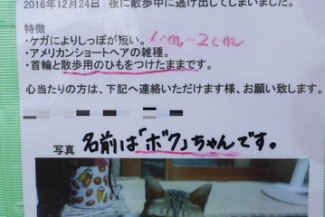 2016年12月24日　夜に散歩中に逃げ出してしまいました。
特徴
・ケガによりしっぽが短い。 1cm-2cm
・アメリカンショートヘアの雑種。
・首輪と散歩用のひもをつけたままです。
心当たりの方は、下記へ連絡いただけます様、お願い致します。
写真 名前は「ボク」ちゃんです。